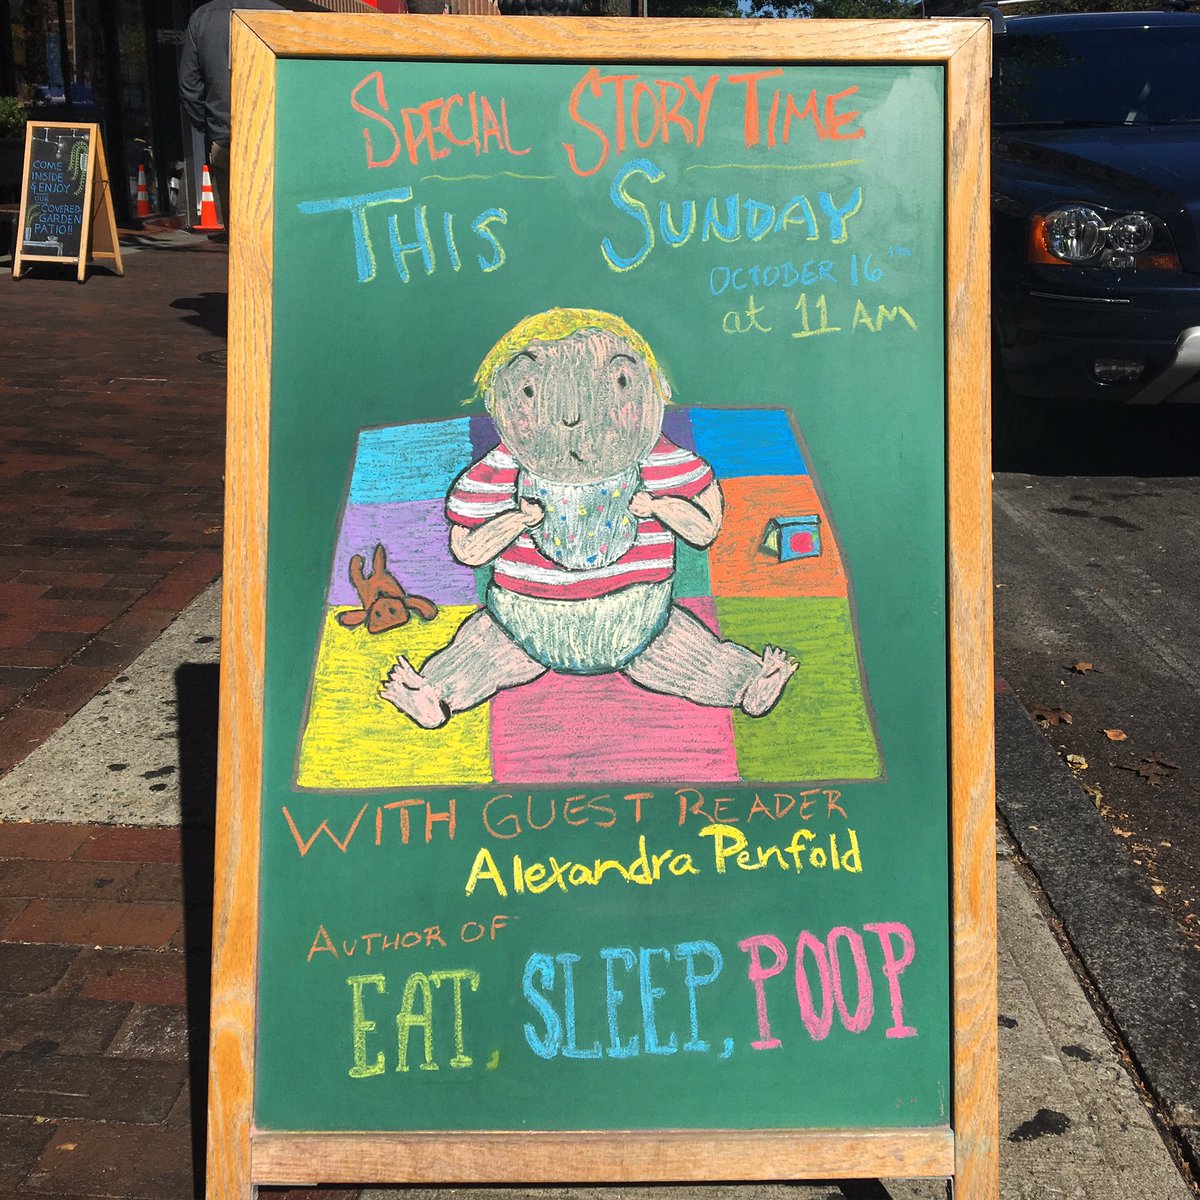 SPECIAL STORY TIME
THIS SUNDAY
OCTOBER 16TH
at 11 AM
WITH GUEST READER
Alexandra Penfold
AUTHOR OF
EAT, SLEEP, POOP
COME
INSIDE
& ENJOY
OUR
COVERED
GARDEN
PATIO!!